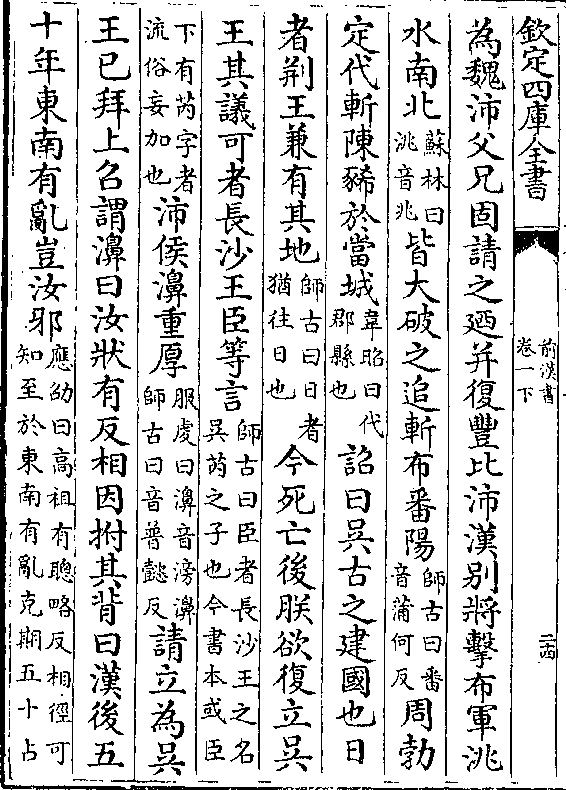 欽定四庫全書
前漢書
卷一下
二四
為魏沛父兄固請之廼并復豐比沛漢别將擊布軍洮
水南北蘇林曰洮音兆皆大破之追斬布番陽師古曰番音蒲何反周勃
定代斬陳豨於當城韋昭曰代郡縣也詔曰吳古之建國也日
者荆王兼有其地師古曰日者猶往日也今死亡後朕欲復立吳
王其議可者長沙王臣等言師古曰臣者長沙王之名吳芮之子也今書本或臣
下有芮字者流俗妄加也沛侯濞重厚服虔曰濞音滂濞師古曰音普懿反請立為吳
王已拜上召謂濞曰汝狀有反相因拊其背曰漢後五
十年東南有亂豈汝邪應劭曰高祖有聰略反相徑可知至於東南有亂克期五十占